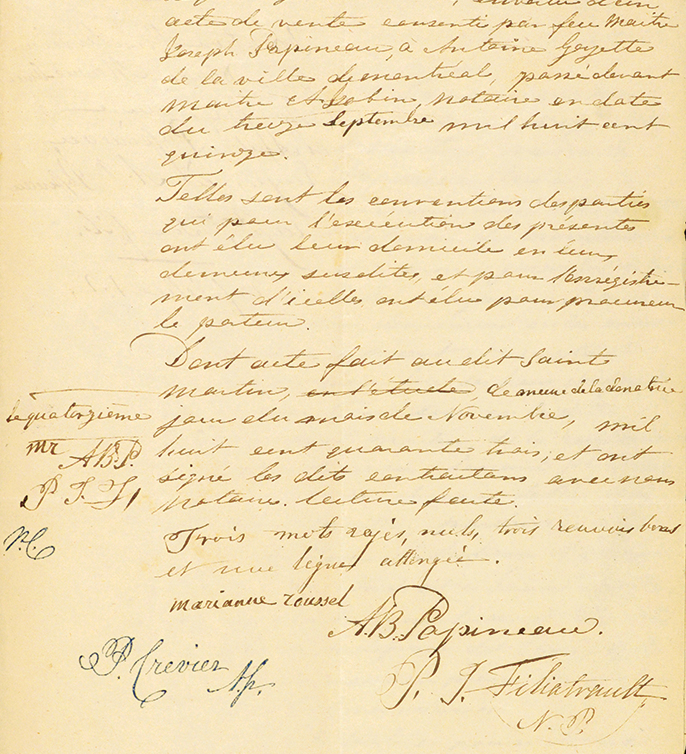 acte de vente consenti par feu Maitre
Joseph Papineau, à Antoine Goyette
de la ville de montréal, passé devant
maitre et Jobin, Notaire en date
du treize Septembre mil huit cent
quinze.
Telles sont les conventions des parties
qui pour l'exécution des présentes
ont élu leur domicile en leurs
demeures susdites, et pour l'enrégistre-
ment d'icelles ont élu pour procureur
le porteur.
Dont acte fait au dit Saint
Martin, en l'étude, demeure de la donatrice
le quatorzième
jour du mois de Novembre, mil
mr A.B.P.
huit cent quarante trois, et ont
P. J. F.
signé les dits contractans avec nous
Notaire. lecture faite.
P.C.
Trois mots rayés, nuls, trois renvois bons
et une ligne allongée.
marianne roussel
A.B. Papineau.
P. Crevier
P. J. Filiatrault
N. P.